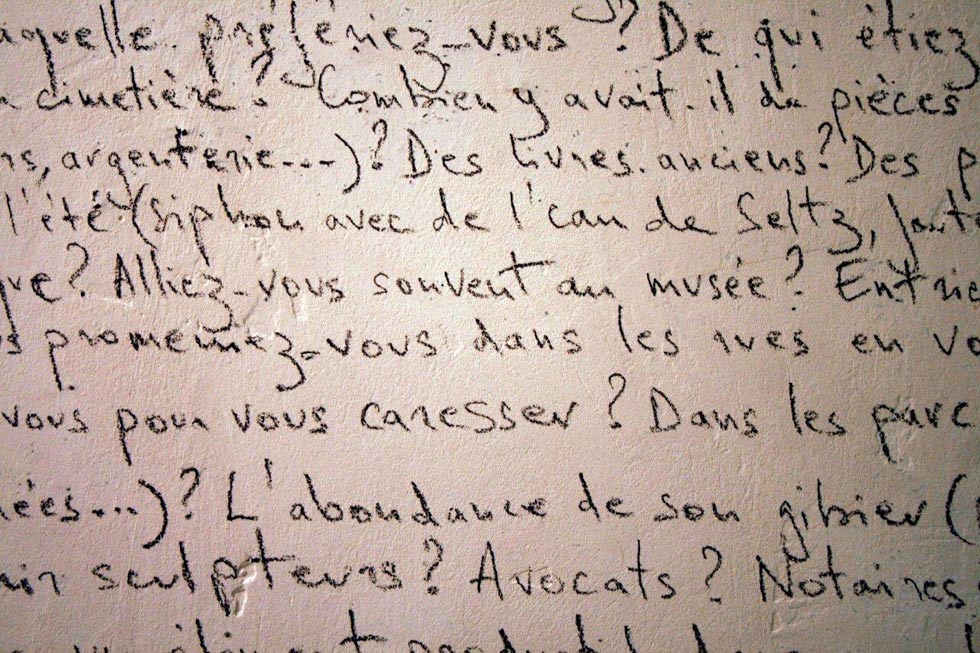 aquelle préfériez-vous ? De qui étiez
cimetière ? Combien y avait-il de pièces
ns, argenterie...) ? Des livres anciens ? Des p
l'été (siphon avec de l'eau de Seltz, jaute
que ? Alliez-vous souvent au musée ? Entrie
s promeniez-vous dans les rues en vo
vous pour vous caresser ? Dans les parc
ées...) ? L'abondance de son gibier (
sculpteurs ? Avocats ? Notaires
élément productif